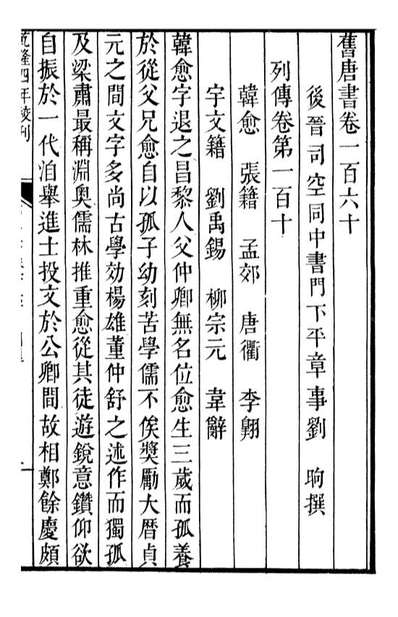 舊唐書卷一百六十
後晉司空同中書門下平章事劉 昫撰
列傳卷第一百十
韓愈 張籍 孟郊 唐衢 李翱
宇文籍 劉禹錫 柳宗元 韋辭
韓愈字退之昌黎人父仲卿無名位愈生三歲而孤養
於從父兄愈自以孤子幼刻苦學儒不俟獎勵大暦貞
元之間文字多尚古學効楊雄董仲舒之述作而獨孤
及梁肅最稱淵奧儒林推重愈從其徒遊銳意鑽仰欲
自振於一代洎舉進士投文於公卿間故相鄭餘慶頗
乾隆四年校刊